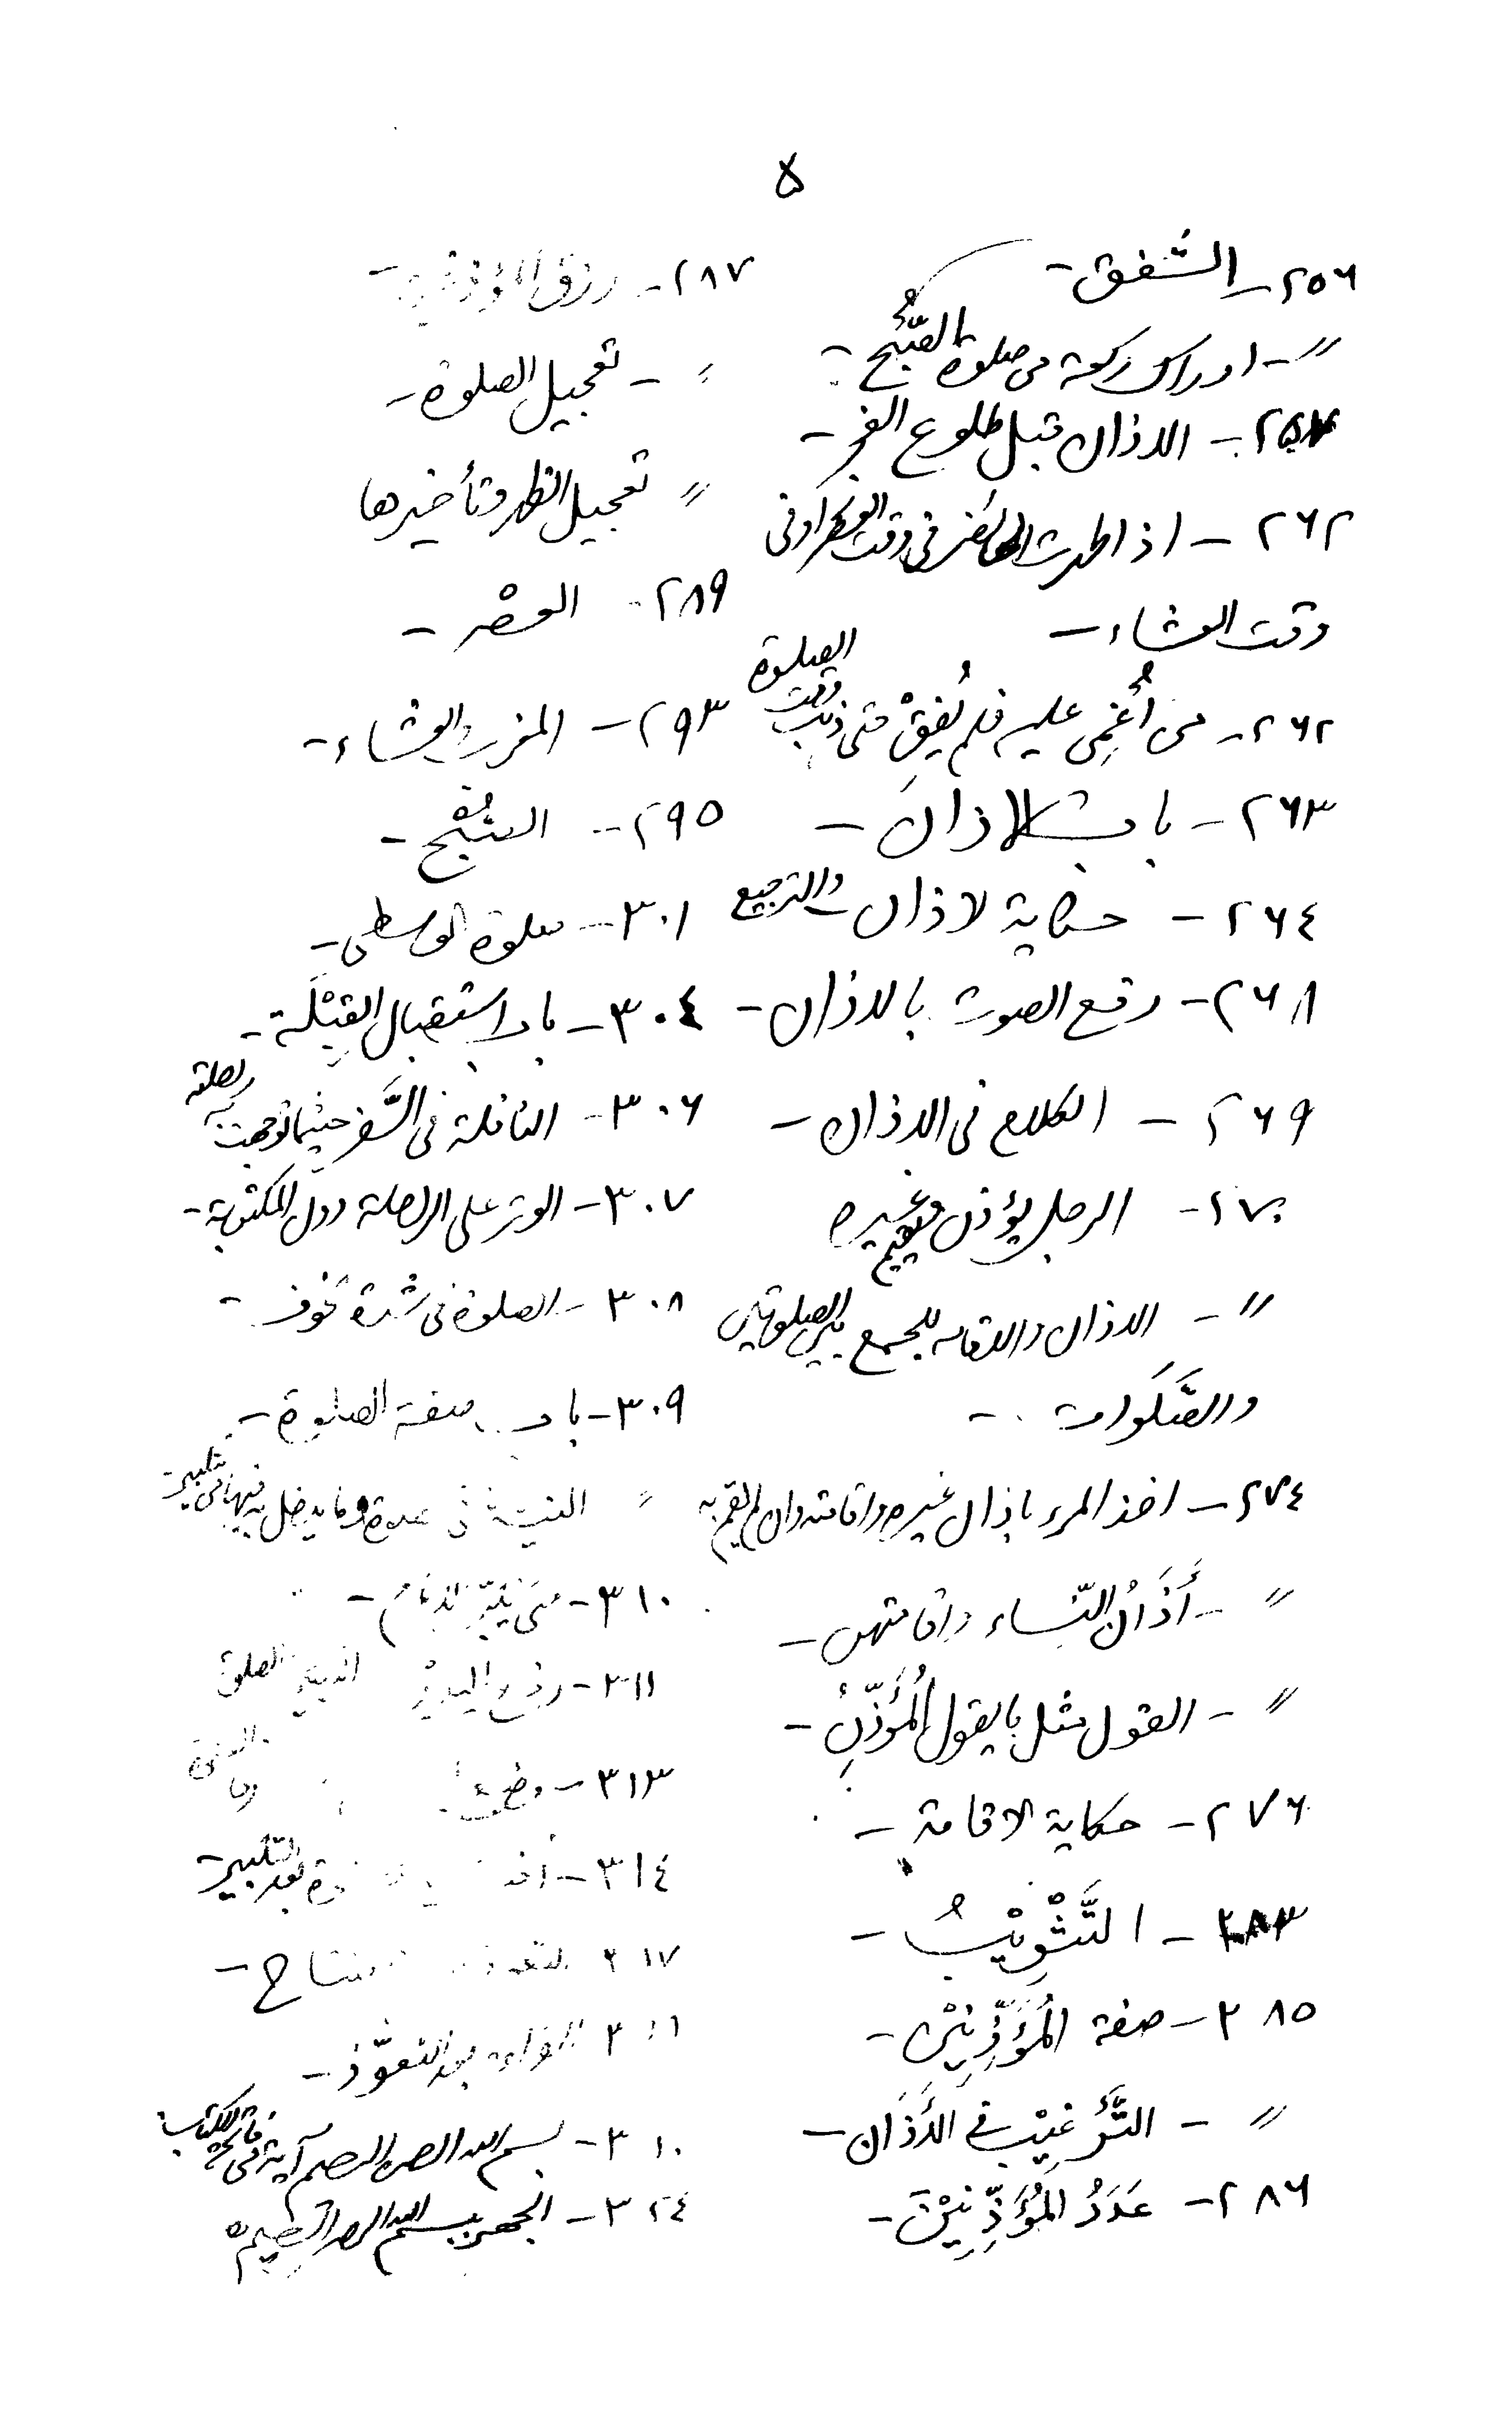 ٥
٢٥٦ - الشَفق -
〃 - ادراك ركعة من صلوة الصُّبْح -
٢٥٧ - الاذان قبل طلوع الفجر -
٢٦٢ - اذا طهرت الحائض فى وقت العصر او فى
وقت العشاء -
٢٦٢ - من أُغْمِى عليه فلم يُفِقْ حتى ذهب وقت الصلوة
٢٦٣ - باب الاذان -
٢٦٤ - حكاية الاذان والترجيع
٢٦٨ - رفع الصوت بالاذان -
٢٦٩ - الكلام فى الاذان -
٢٧٠ - الرجل يؤذن ويقيم غيره
〃 - الاذان والاقامه للجمع بين الصلوتين
والصَّلَوات -
٢٧٤ - اخذ المرء باذان غيره واقامته وان لم يقم به
〃 - أَذَانُ النّساء واقامتهن -
〃 - القول مثل ما يقول المُؤَذِّنُ -
٢٧٦ - حكاية الاقامة -
٢٨٣ - التَّثْوِيْبُ -
٢٨٥ - صفة المُؤَذِّنِيْن -
〃 - التَّرْغِيْب فى الأَذَان -
٢٨٦ - عَدَدُ المُؤَذِّنِيْنَ -
٢٨٧ - رزق المؤذن -
〃 - تعجيل الصلوة -
〃 تعجيل الظهر وتأخيرها
٢٨٩ - العصْر -
٢٩٣ - المغرب والعشاء -
٢٩٥ - الصُّبْح -
٣٠١ - صلوة الوسطى -
٣٠٤ - باب استقبال القِبْلَة -
٣٠٦ - النافلة فى السَّفر حيثما توجهت به راحلته
٣٠٧ - الوتر على الراحلة دون المكتوبة -
٣٠٨ - الصلوة فى شدة الخوف -
٣٠٩ - باب صفة الصلوة -
〃 النيّة فى الصلوة وما يدخل به فيها من تكبير -
٣١٠ - متى يُكَبِّر الامام -
٣١١ - رفع اليدين الصلوة
٣١٣ - وضع
٣١٤ - بعد التكبير -
٣١٧ التعوذ -
القراءة بعد التعوّذ -
بسم الله الرحمن الرحيم آية من فاتحة الكتاب
٣٢٤ - الجهر ببسم الله الرحمن الرحيم